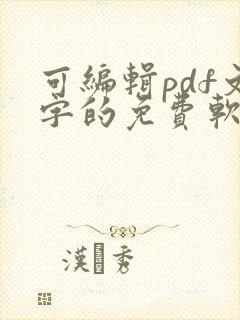 可編輯pdf文
字的免費軟
漢 秀